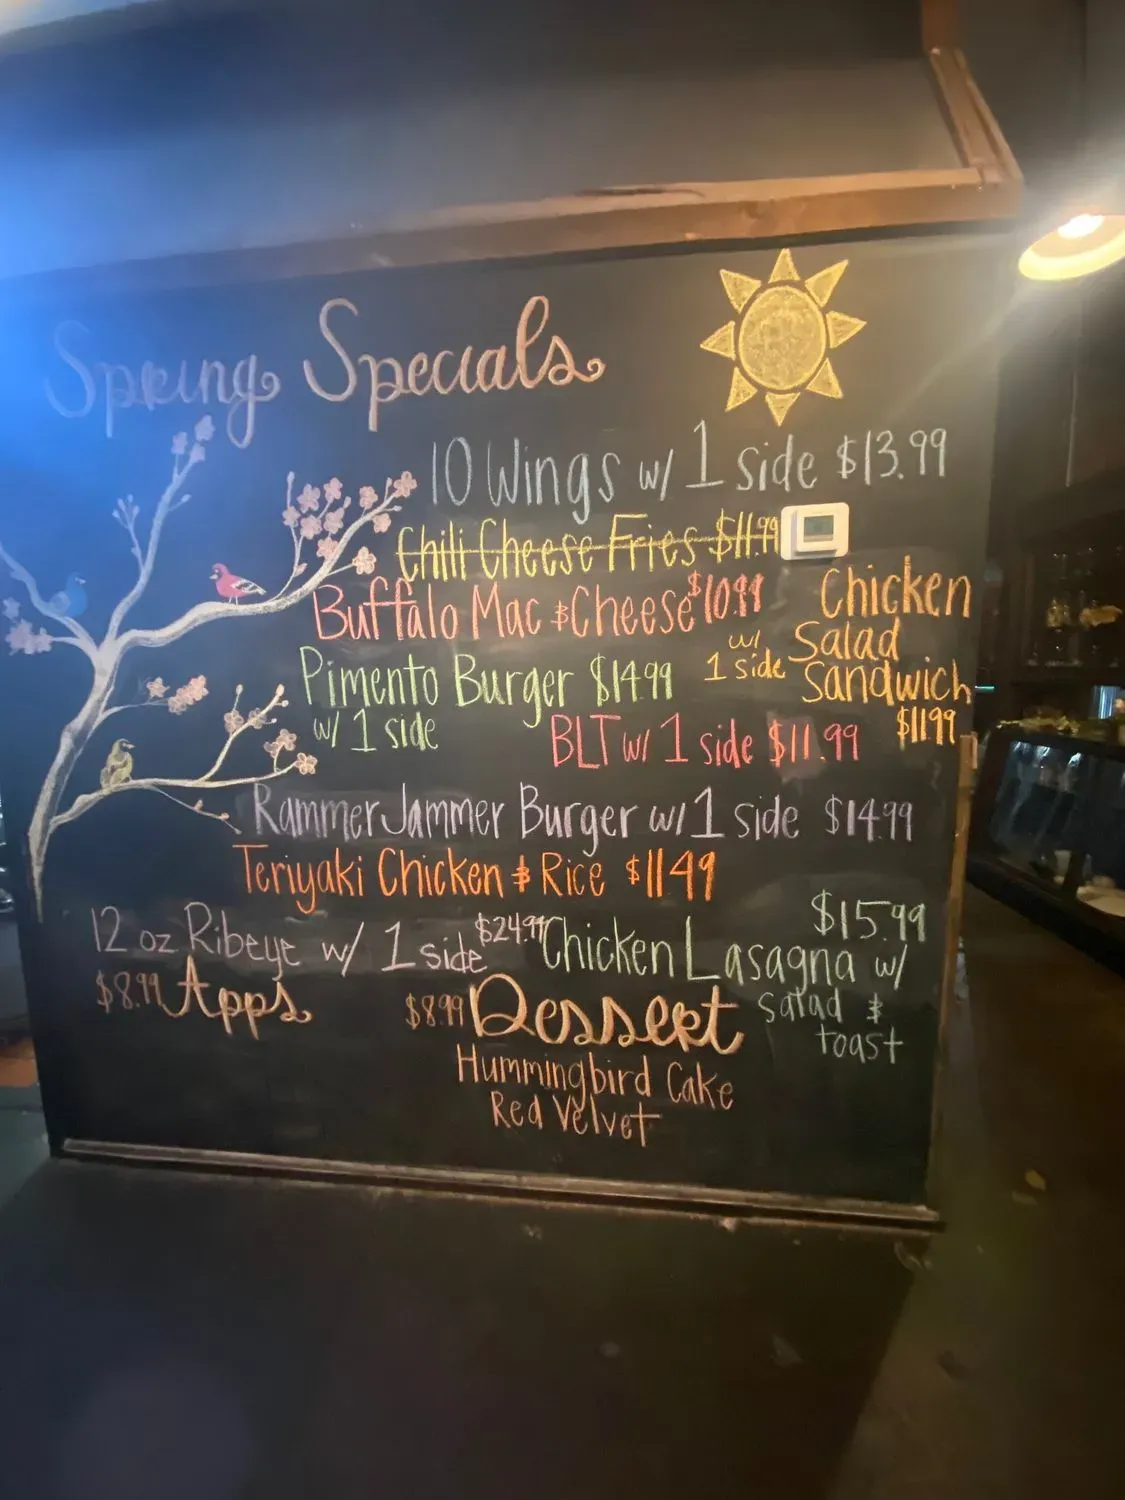 Spring Specials
10 Wings w/ 1 side $13.99
Chili Cheese Fries $11.99
Buffalo Mac & Cheese $10.99
Chicken
Salad
Sandwich
w/
1 side
$11.99
Pimento Burger $14.99
w/ 1 side
BLT w/ 1 side $11.99
Rammer Jammer Burger w/ 1 side $14.99
Teriyaki Chicken & Rice $11.49
12 oz Ribeye w/ 1 side $24.99
$15.99
Chicken Lasagna w/
salad &
toast
$8.99 Apps
$8.99 Dessert
Hummingbird Cake
Red Velvet